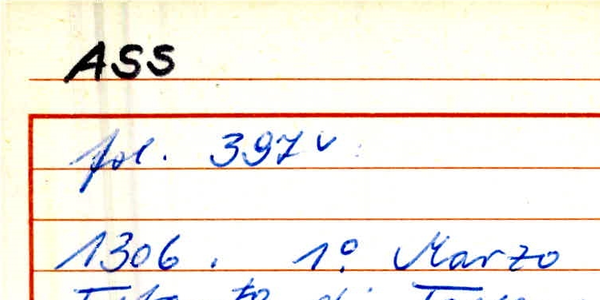 ASS
fol. 397v.
1306. 1º Marzo
di